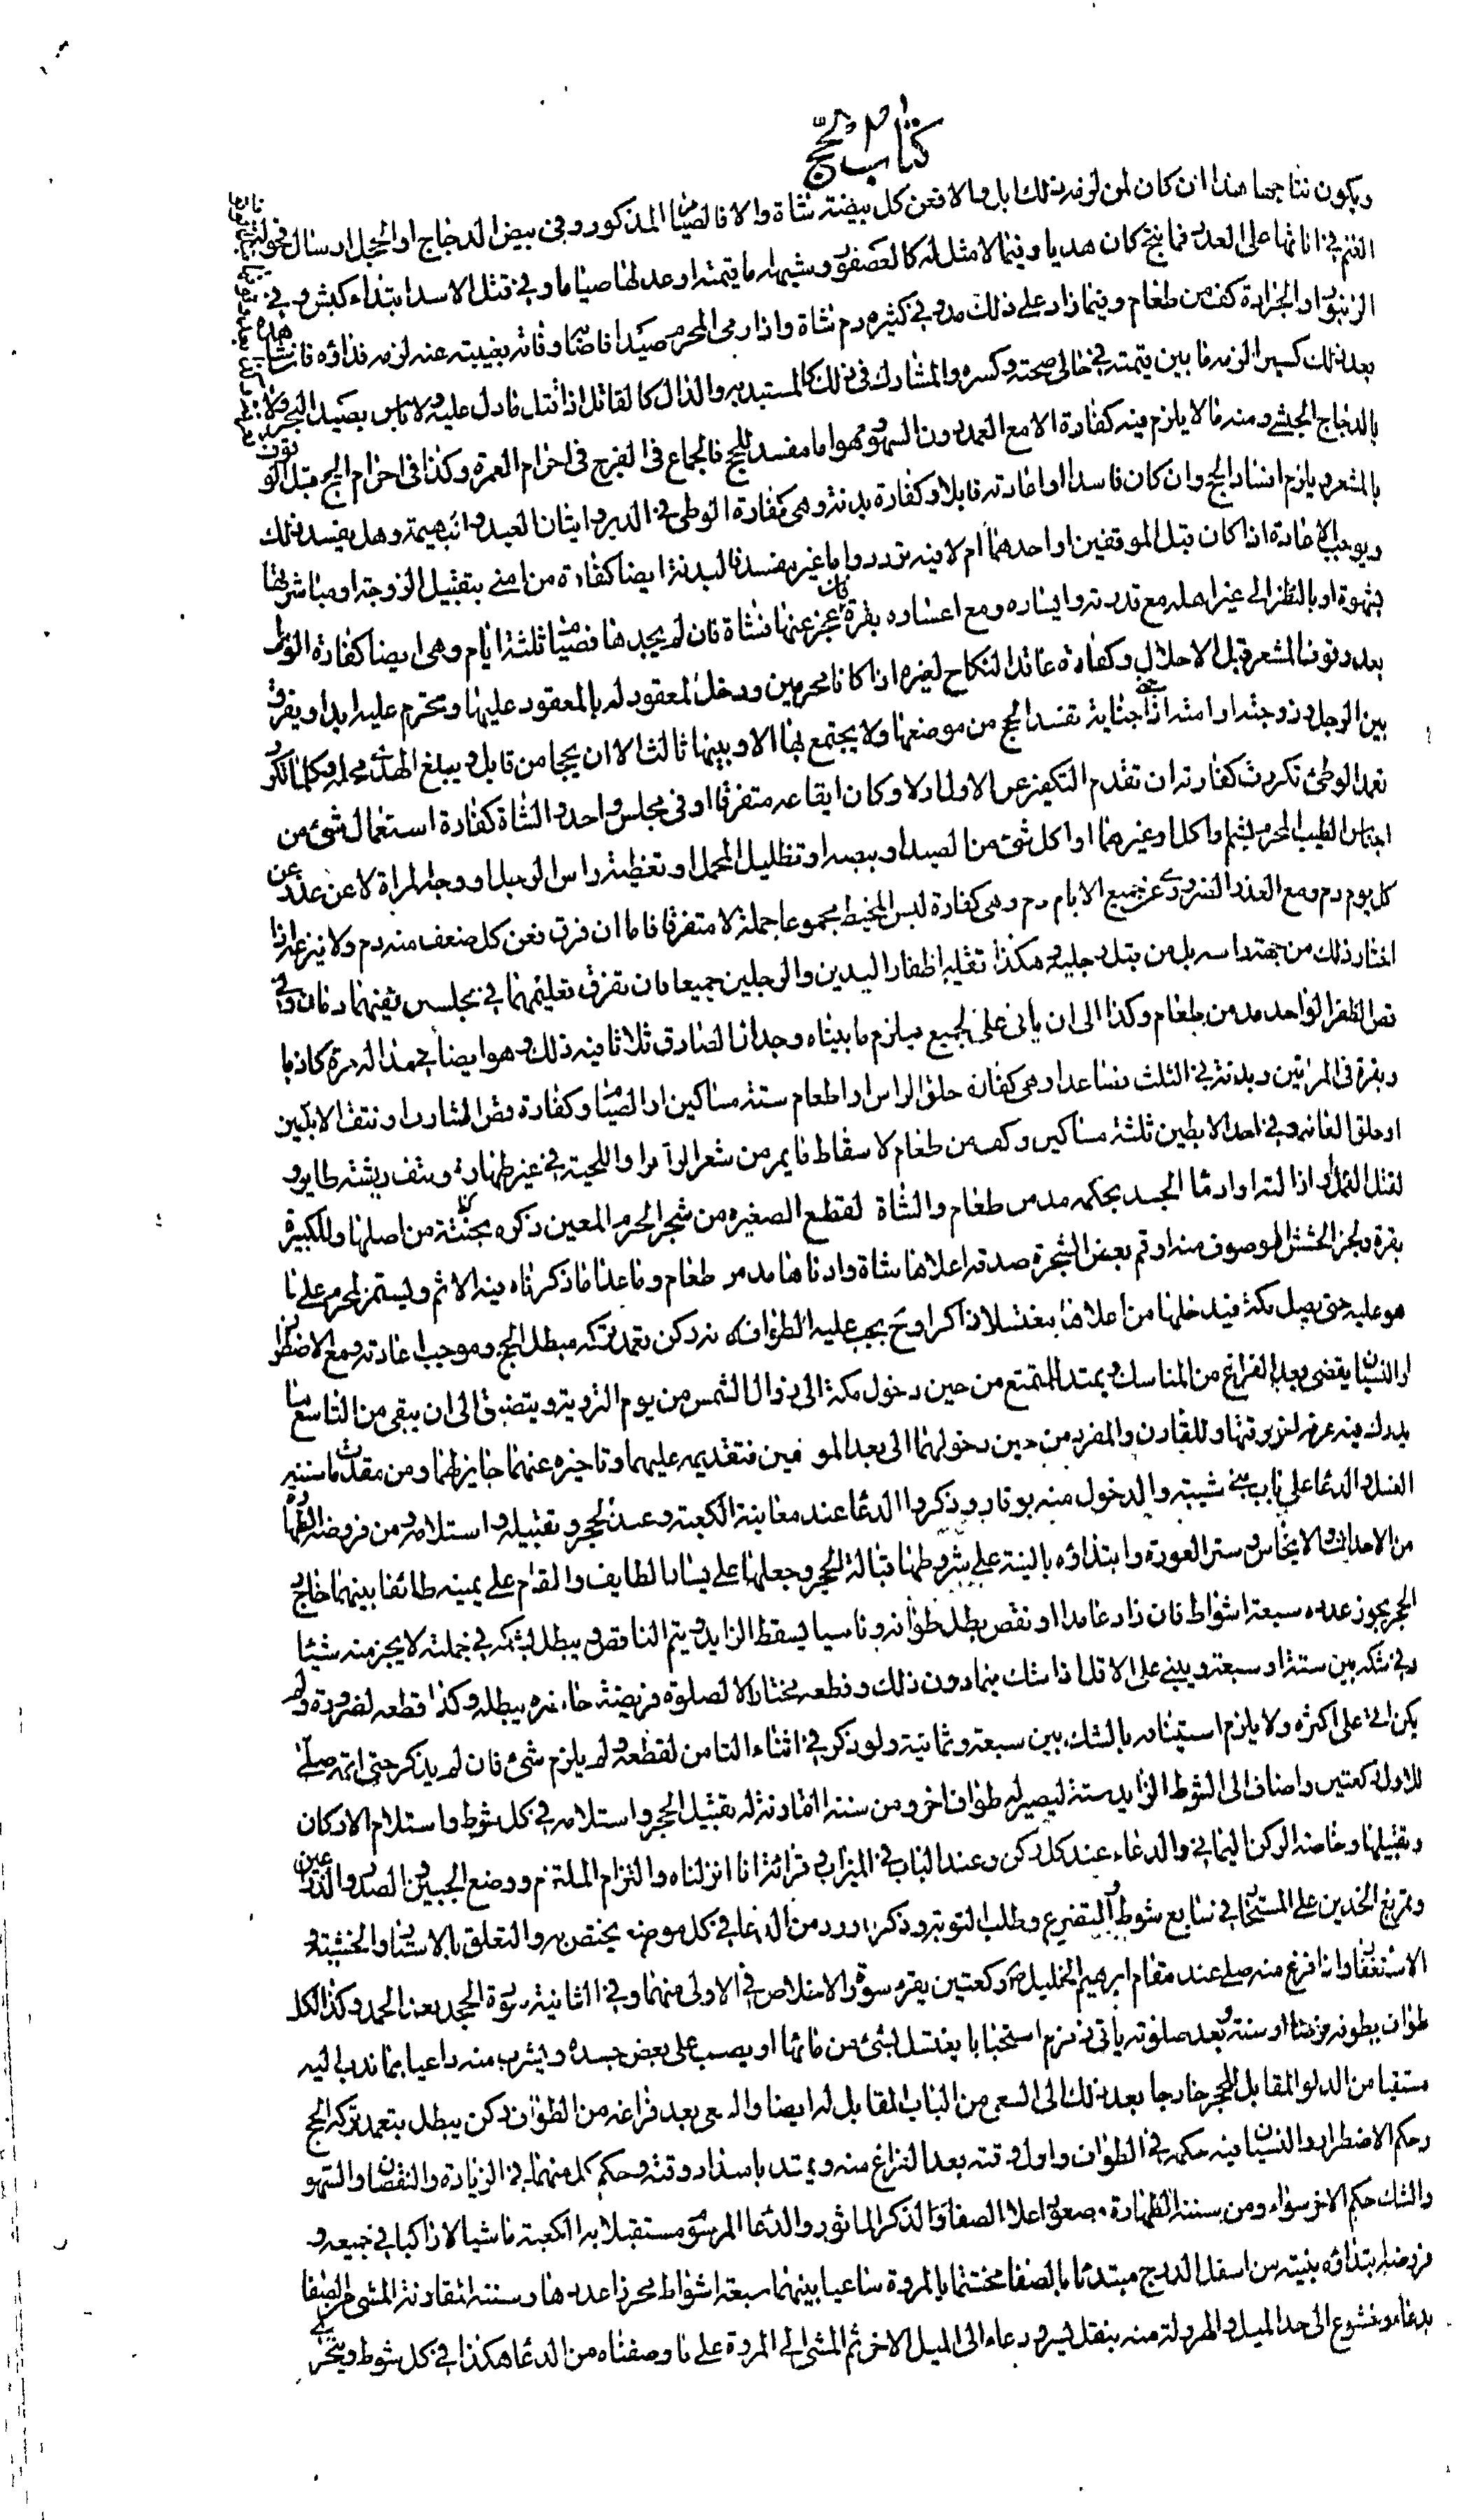 كتاب الحج
ويكون نتاجها هذا ان كان لمن لزمه ذلك ابل والا فعن كل بيضة شاة والا فالصيام المذكور وفي بيض الدجاج او الحجل ارسال فحولة
الغنم في اناثها على العدد فما نتج كان هديا وفيما لا مثل له كالعصفور وشبهه ما قيمته او عدلها صياما وفي قتل الاسد ابتداء كبش وفي
الزنبور او الجرادة كف من طعام وفيما زاد على ذلك مد وفي كثيره دم شاة واذا رمى المحرم صيدا فاصابه وفاته بغيبته عنه لزمه فداؤه فان شاهده
بعد ذلك كسيرا لزمه ما بين قيمته في حالي صحته وكسره والمشارك في ذلك كالمستبد به والدال كالقاتل اذا قتل ما دل عليه ولا باس بصيد البحر ولا
بالدجاج الحبشي ومنه ما لا يلزم فيه كفارة الا مع العمد دون السهو وهو اما مفسد للحج فالجماع في الفرج في احرام العمرة وكذا في احرام الحج قبل الوقوف
بالمشعر ويلزم افساد الحج وان كان فاسدا واعادته قابلا وكفارة بدنة وهي كفارة الوطي في الدبر واتيان العبد والبهيمة وهل يفسد ذلك
ويوجب الاعادة اذا كان قبل الموقفين او احدهما ام لا فيه تردد واما غير مفسد فالبدنة ايضا كفارة من امنى بتقبيل الزوجة او مباشرتها
بشهوة او بالنظر الى غير اهله مع قدرته وايساره ومع اعساره بقرة فان عجز عنها فشاة فان لم يجدها فصيام ثلثة ايام وهي ايضا كفارة الوطي
بعد وقوف المشعر قبل الاحلال وكفارة عاقد النكاح لغيره اذا كانا محرمين ودخل المعقود له بالمعقود عليها وتحرم عليه ابدا ويفرق
بين الرجل وزوجته او امته اذا جناية تفسد الحج من موضعها ولا يجتمع بها الا وبينها ثالث الا ان يحجا من قابل ويبلغ الهدي محله وكلما تكرر
تعمد الوطئ تكررت كفارته ان تقدم التكفير عن الاول او لا وكان ايقاعه متفرقا او في مجلس واحد والشاة كفارة استعمال شئ من
اجناس الطيب المحرم بشم او اكل او غيرهما او اكل شئ من الصيد او بيضه او تظليل المحمل او تغطية راس الرجل او وجه المراة لا عن عذر عن
كل يوم دم ومع العذر الضروري عن جميع الايام دم وهي كفارة لبس المخيط مجموعا جملة لا متفرقا فاما ان فرق فعن كل صنف منه دم ولا ينزعه اذا
اختار ذلك من جهة راسه بل من قبل رجليه وهكذا تقليم اظفار اليدين والرجلين جميعا فان تفرق تعليمهما في مجلسين ففيهما دمان وفي
قص الظفر الواحد مد من طعام وكذا الى ان ياتي على الجميع فيلزم ما بيناه وجدال الصادق ثلاثا فيه ذلك وهو ايضا جهد اله مرة كاذبا
وبقرة في المرتين وبدنة في الثلث فصاعدا وهي كفارة حلق الراس او اطعام ستة مساكين او الصيام وكفارة قص الشارب او نتف الابطين
او حلق العانة وفي احد الابطين ثلثة مساكين وكف من طعام لاسقاط ما يمر من شعر الراس او اللحية في غير طهارة ونتف ريشة طاير و
لقتل القمل او ازالته او ادما الجسد بحكه مد من طعام والشاة لقطع الصغيرة من شجر الحرم المعين ذكره بجثته من اصلها وللكبيرة
بقرة ولجز الحشيش الموصوف منه او قلم بعض الشجرة صدقة اعلاها شاة وادناها مد من طعام وما عدا ما ذكرناه فيه الاثم وليستمر المحرم على ما
هو عليه حتى يصل مكة فيدخلها من اعلاها مغتسلا ذاكرا وح يجب عليه الطواف لانه ركن تعمد تركه مبطل للحج وموجب اعادته ومع الاضطرار
او النسيان يقضي بعد الفراغ من المناسك ويمتد للمتمتع من حين دخول مكة الى زوال الشمس من يوم التروية ويتضيق الى ان يبقى من التاسع ما
يدرك فيه عرفة لنزر وقتها وللقارن والمفرد من حين دخولهما الى بعد الموقفين فتقديمه عليهما وتاخيره عنهما جايز لهما ومن مقدمات سننه
الغسل والدعا على باب بني شيبة والدخول منه بوقار وذكر والدعا عند معاينة الكعبة وعند الحجر وتقبيله واستلامه ومن فروضه الطهارة
من الاحداث والانجاس وستر العورة وابتداؤه بالنية على شروطها قبالة الحجر وجعلها على يسار الطايف والمقام على يمينه طائفا بينهما خارج
الحجر يحوز عدده سبعة اشواط فان زاد عامدا او نقص بطل طوافه وناسيا يسقط الزايد ويتم الناقص ويبطل بشكه في جملته لا يحرز منه شيئا
وفي شكه بين ستة وسبعة ويبني على الاقل اذا شك فيما دون ذلك وقطعه مختارا لا لصلوة فريضة حاضرة يبطله وكذا قطعه لضرورة ولم
يكن اتى على اكثره ولا يلزم استينافه بالشك بين سبعة وثمانية ولو ذكر في اثناء الثامن لقطعه ولم يلزم شئ فان لم يذكر حتى اتمه صلى
للاول ركعتين واضاف الى الشوط الزايد ستة ليصير له طواف اخر ومن سننه المقارنة له تقبيل الحجر واستلامه في كل شوط واستلام الاركان
وتقبيلها وخاصة الركن اليماني والدعاء عند كل ركن وعند الباب في الميزاب وقرائة انا انزلناه والتزام الملتزم ووضع الجبين والصدر والذراعين
وتمريغ الخدين على المستجار في سابع شوط والتضرع وطلب التوبة وذكر ما ورد من الدعا في كل موضع يختص به والتعلق بالاستار والخشية و
الاستغفار واذا فرغ منه صلى عند مقام ابرهيم الخليل ركعتين يقرء سورة الاخلاص في الاولى منهما وفي الثانية سورة الجحد بعد الحمد وكذا لكل
طواف يطوفه فرضا او سنة وبعد صلوته ياتي زمزم استحبابا يغتسل بشئ من مائها او يصب على بعض جسده ويشرب منه داعيا بما ندب اليه
مستقيا من الدلو المقابل للحجر خارجا بعد ذلك الى السعي من الباب المقابل له ايضا والسعي بعد فراغه من الطواف ركن يبطل بتعمد تركه الحج
وحكم الاضطرار والنسيان فيه حكمه في الطواف واول وقته بعد الفراغ منه ويمتد بامتداد وقته وحكم كل منهما في الزيادة والنقصان والسهو
والشك حكم الاخر سواء ومن سننه الطهارة وصعود اعلا الصفا والذكر الماثور والدعا المرسوم مستقبلا به الكعبة ماشيا لا راكبا في جميعه و
فروضه ابتداؤه بنيته من اسفل الدرج مبتدئا بالصفا مختتما بالمروة ساعيا بينهما سبعة اشواط محرزا عددها وسننه المقارنة المشي من الصفا
بدعاء وخشوع الى حد الميل والهرولة منه بثقل ليرد دعاء الى الميل الاخر ثم المشي الى المروة على ما وصفناه من الدعا هكذا في كل شوط ويتحرى